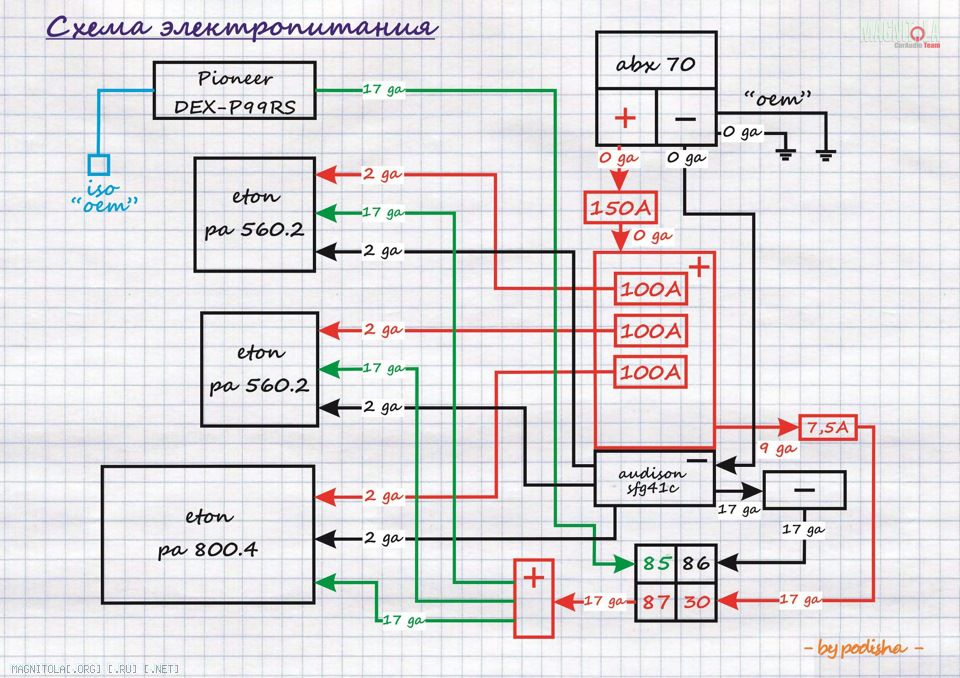 Схема электропитания
MAGNITOLA
CarAudio Team
Pioneer
DEX-P99RS
17 ga
abx 70
+
−
"oem"
0 ga
0 ga
0 ga
iso
"oem"
eton
pa 560.2
2 ga
17 ga
2 ga
150A
0 ga
+
100A
100A
100A
eton
pa 560.2
2 ga
17 ga
2 ga
7,5A
9 ga
audison
sfg41c
−
17 ga
−
17 ga
eton
pa 800.4
2 ga
2 ga
17 ga
+
17 ga
85
86
87
30
17 ga
- by podisha -
MAGNITOLA[.ORG] [.RU] [.NET]